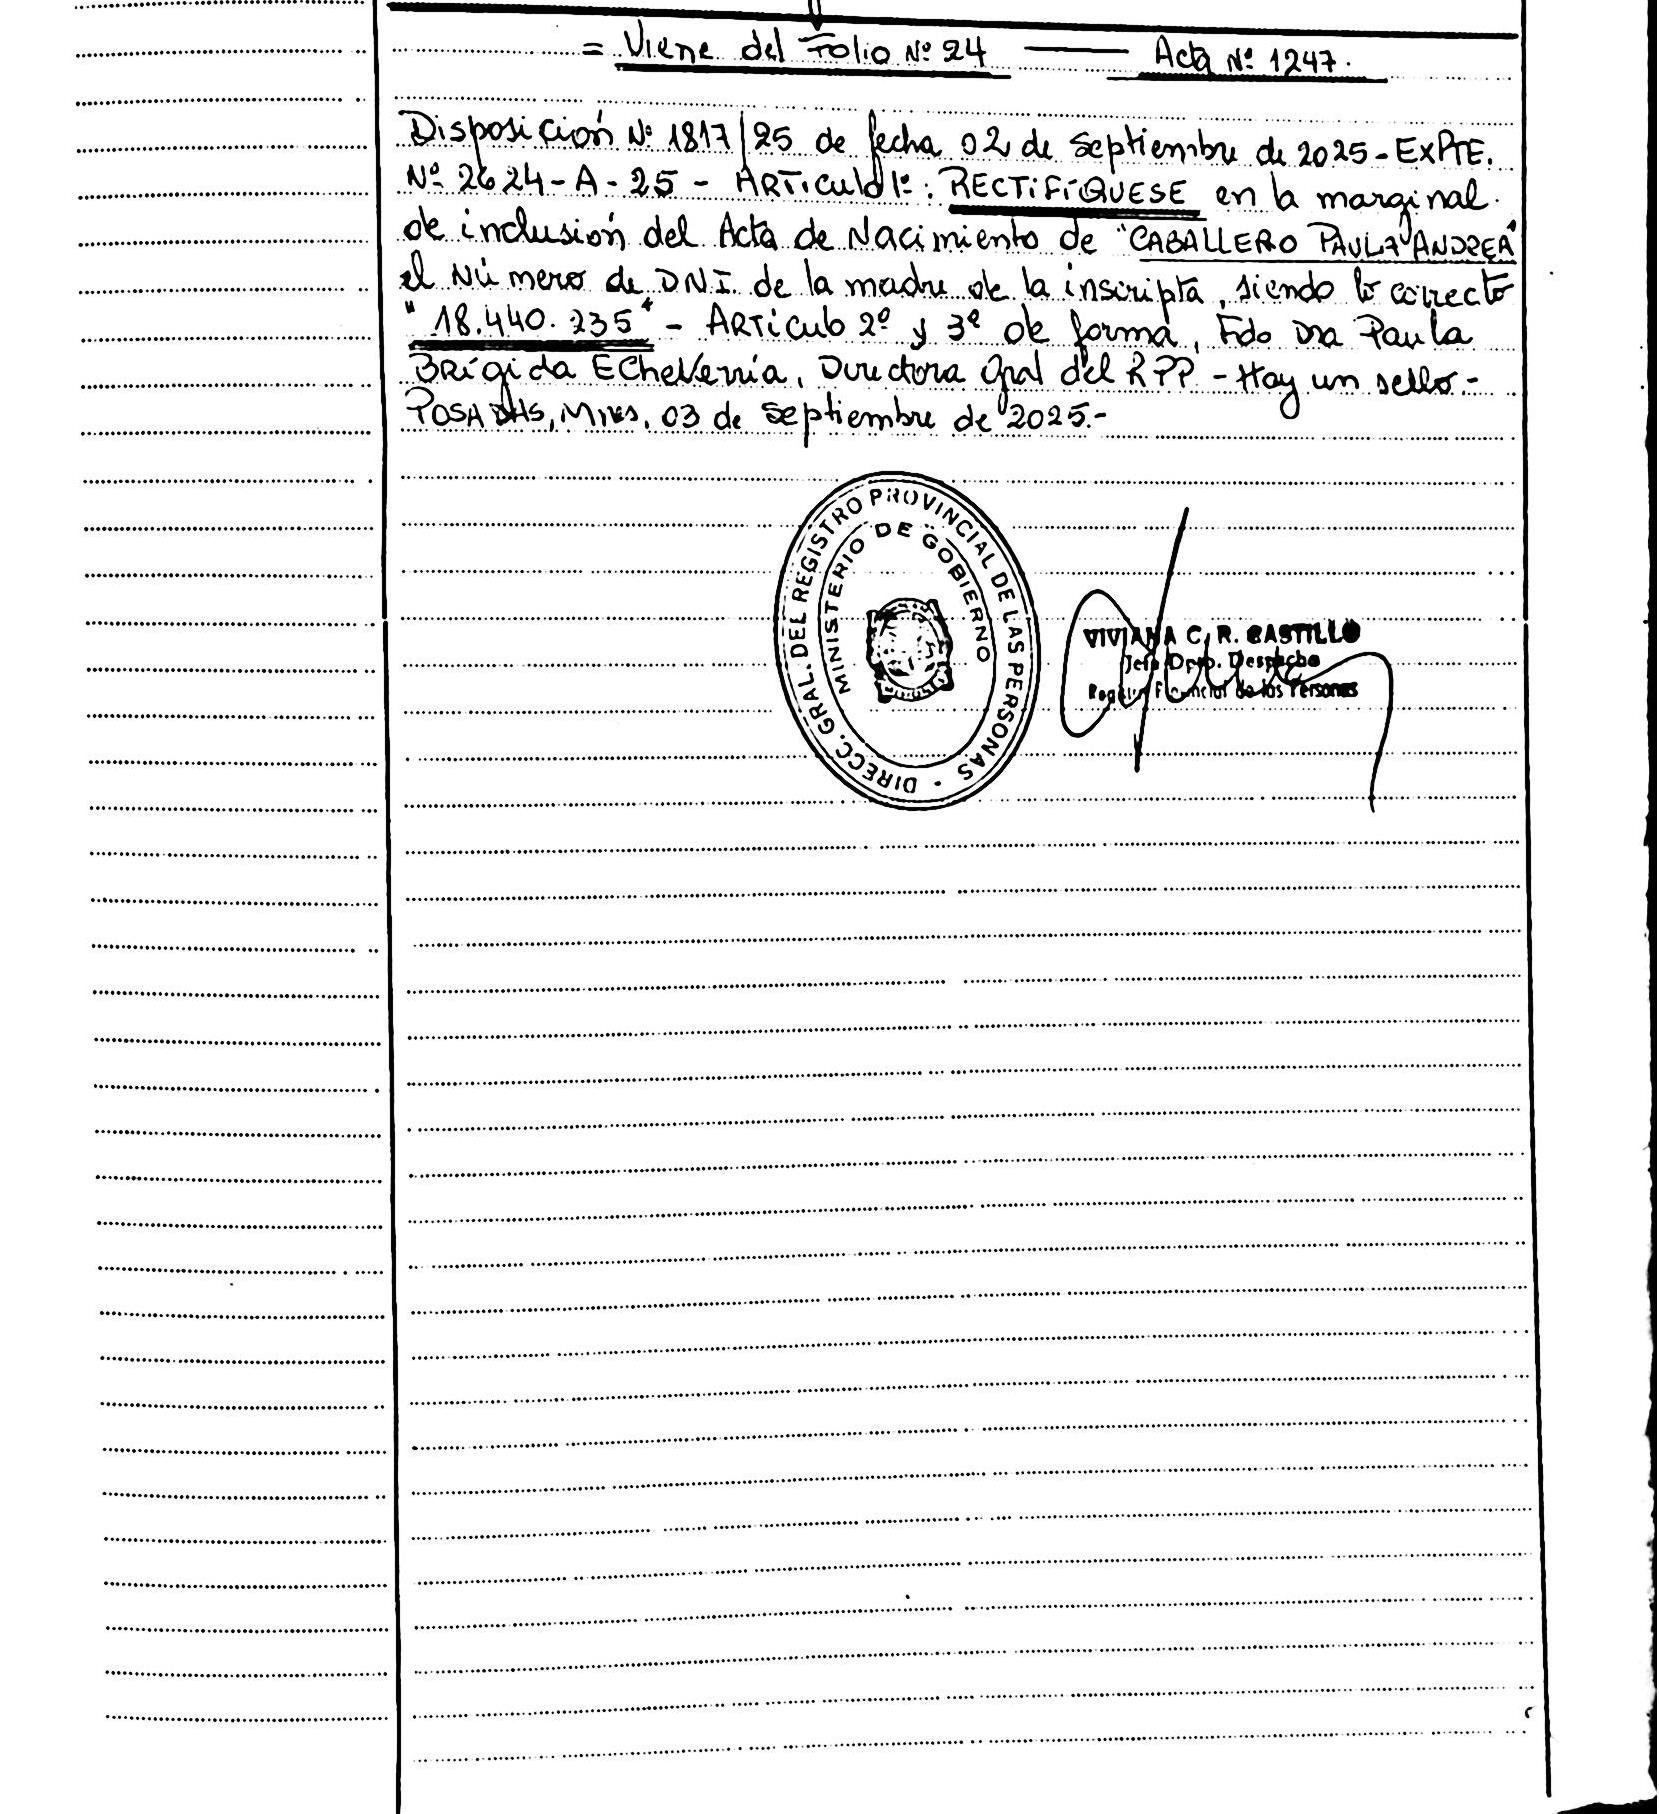 = Viene del Folio Nº 24 —— Acta Nº 1247.
Disposición Nº 1817/25 de fecha 02 de Septiembre de 2025 - EXPTE.
Nº 2624-A-25 - ARTículo 1º: RECTIFÍQUESE en la marginal
de inclusión del Acta de Nacimiento de "CABALLERO PAULA ANDREA"
el Número de DNI. de la madre de la inscripta, siendo lo correcto
"18.440.235" - ARTículo 2º y 3º de forma, Fdo Dra Paula
Brígida ECheverría, Directora Gral del RPP - Hay un sello.-
POSADAS, Mnes, 03 de Septiembre de 2025.-
DIRECC. GRAL. DEL REGISTRO PROVINCIAL DE LAS PERSONAS -
MINISTERIO DE GOBIERNO
VIVIANA C. R. CASTILLO
Jefa Dpto. Despacho
Registro Provincial de las Personas